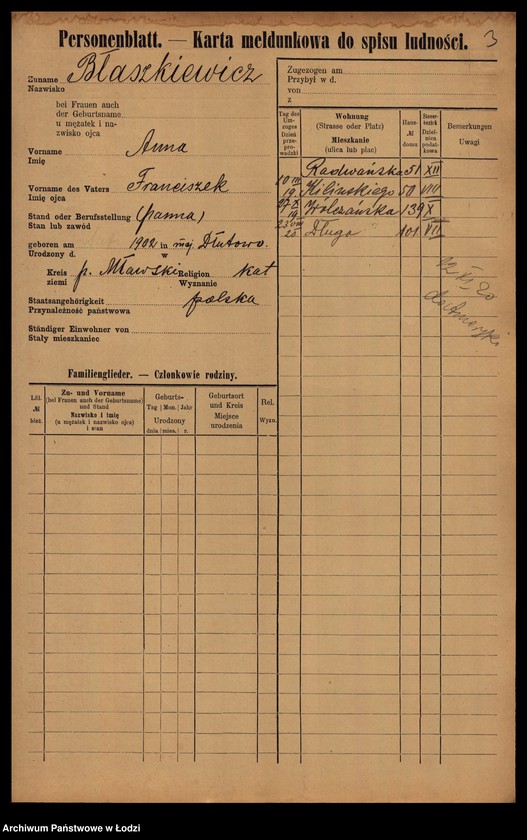 Personenblatt. — Karta meldunkowa do spisu ludności.
3
Zuname Błaszkiewicz
Nazwisko
bei Frauen auch
der Geburtsname
u mężatek i na-
zwisko ojca
Vorname Anna
Imię
Vorname des Vaters Franciszek
Imię ojca
Stand oder Berufsstellung (panna)
Stan lub zawód
geboren am 1902 in maj. Dłutowo.
Urodzony d. w
Kreis p. Mławski Religion kat
ziemi Wyznanie
Staatsangehörigkeit polska
Przynależność państwowa
Ständiger Einwohner von
Stały mieszkaniec
Zugezogen am
Przybył w d.
von
z
Tag des Um-zuges Dzień prze-prowadzki
Wohnung (Strasse oder Platz) Mieszkanie (ulica lub plac)
Haus-№ domu
Steuer-bezirk Dzielnica podatkowa
Bemerkungen Uwagi
Radwańska 51 XII
10 III 19 Kilinskiego 50 VIII
27 X 19 Wolczańska 139 X
23 VIII 20 Długa 101 VII
12 XI 20
do Ameryki
Familienglieder. — Członkowie rodziny.
Lfd. № bież.
Zu- und Vorname (bei Frauen auch der Geburtsname) und Stand Nazwisko i imię (u mężatek i nazwisko ojca) i stan
Geburts- Tag | Mon. | Jahr Urodzony dnia | mies. | r.
Geburtsort und Kreis Miejsce urodzenia
Rel. Wyzn.
Archiwum Państwowe w Łodzi